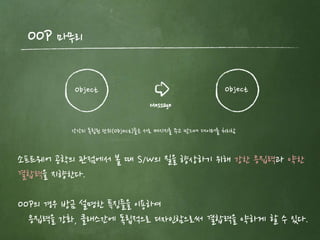 OOP 마무리
Object
Object
Message
각각의 독립된 단위(Object)들은 서로 메시지를 주고 받으며 데이터를 처리함
소프트웨어 공학의 관점에서 볼 때 S/W의 질을 향상하기 위해 강한 응집력과 약한
결합력을 지향한다.
OOP의 경우 방금 설명한 특징들을 이용하여
응집력을 강화, 클래스간에 독립적으로 디자인함으로써 결합력을 약하게 할 수 있다.